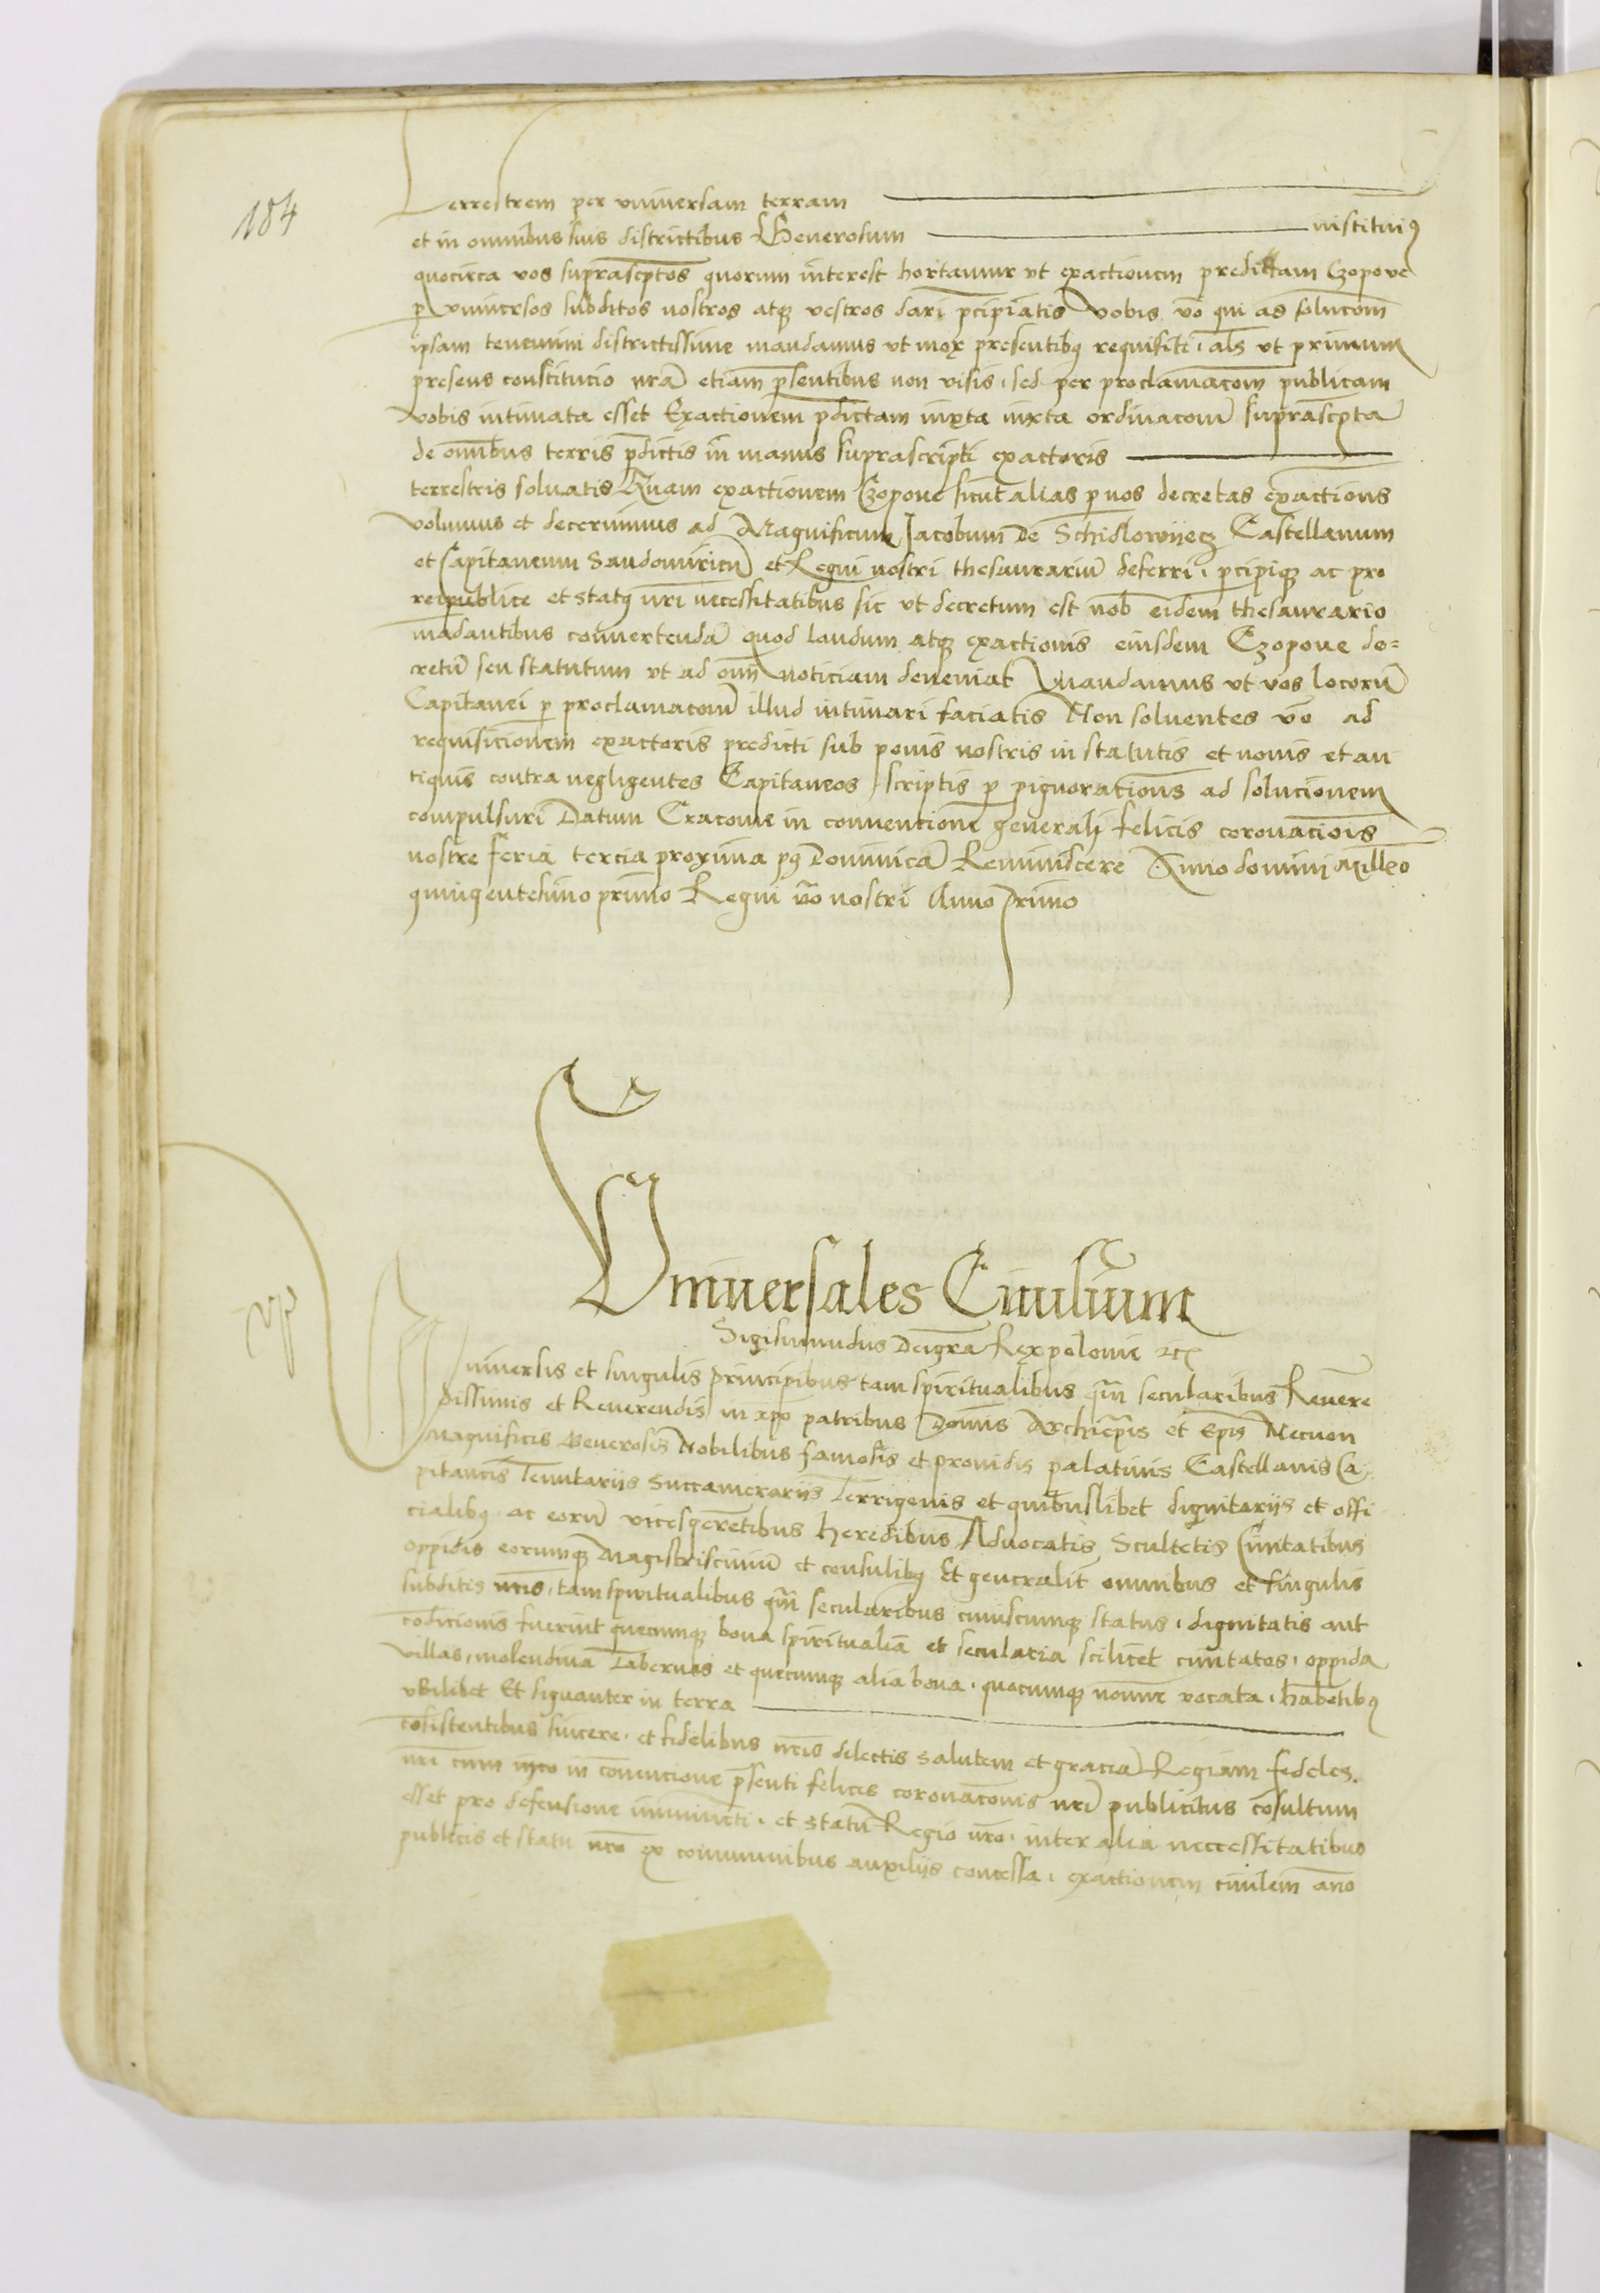 184
Terrestrem per vniuersam terram
et in omnibus suis districtibus Generosum instituim9
quocirca vos suprascptos quorum interest hortamur vt exactionem predictam Czopove
p vniuersos subditos nostros atq vestros dari pcipiatis vobis vo qui ad solucom
ipsam tenemini districtissime mandamus vt mox presentib9 requisiti, als vt primum
presens constitucio nra etiam psentibus non visis, sed per proclamacom publicam
vobis intimata esset Exactionem pdictam iuxta iuxta ordinacom suprascpta
de omibus terris pdictis in manus suprascripti exactoris
terrestris soluatis Quam exactionem Czopove sicut alias p nos decretas exactions
volumus et decernimus ad Magnificum Jacobum De Schidlowijecz Castellanum
et Capitaneum Sandomirien et Regni nostri thesaurarium deferri, pcipiq ac pro
reipublice et stat9 nri necessitatibus sic vt decretum est nob eidem thesaurario
madantibus conuertenda quod laudum atq exactionis eiusdem Czopove de=
cretu seu statutum vt ad oim noticiam deueniat Mandamus vt vos locoru
Capitanei p proclamacom illud intimari faciatis Non soluentes vo ad
requisicionem exactoris predicti sub penis nostris in statutis et nouis et an
tiquis contra negligentes Capitaneos scriptis p pignorations ad solucionem
compulsuri Datum Cracouie in conuentione generali felicis coronaciois
nostre feria tercia proxima p9 Dominica Reminiscere Anno domini Milleo
quingentesimo primo Regni vo nostri Anno Primo
Vniuersales Ciuilium
Sigismundus Dei gra Rex polonie etc
Vniuersis et singulis principibus tam spiritualibus qm secularibus Reuere
dissimis et Reuerendis in xpo patribus Domis Archiepis et Epis Necnon
Magnificis Generosis Nobilibus famosis et prouidis palatinis Castellanis Ca
pitaneis Tenutariis Succamerariis Terrigenis et quibuslibet dignitariis et offi
cialib9 ac eoru vicesgerentibus heredibus Aduocatis Scultetis Ciuitatibus
oppidis eorumq Magistriscuium et consulib9 Et generalit omnibus et singulis
subditis nris, tam spiritualibus qm secularibus cuiuscumq status, dignitatis aut
coditionis fuerint quecumq bona spiritualia et secularia scilicet ciuitates, oppida
villas, molendina Tabernas et quecumq alia bona, quocumq nomine vocata, habetib9
vbilibet Et signanter in terra
cosistentibus sincere, et fidelibus nris delectis salutem et gracia Regiam fideles
nri cum in conuencione psenti felicis coronaconis nre publicitus cosultum
esset pro defensione imineti, et statu Regio nro, inter alia necessitatibus
publicis et statu nro ex comunibus auxiliis concessa, exactionem ciuilem ano